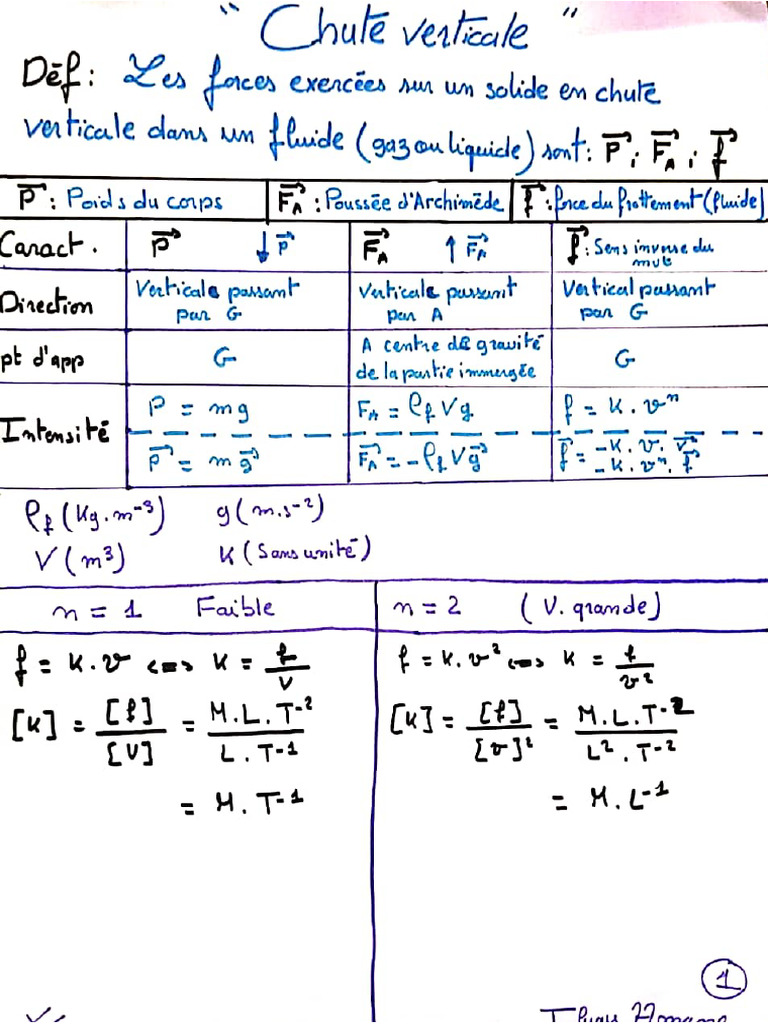 " Chute verticale "
Déf : Les forces exercées sur un solide en chute
verticale dans un fluide (gaz ou liquide) sont : P⃗ ; F⃗A ; f⃗
P⃗ : Poids du corps | F⃗A : Poussée d'Archimède | f⃗ : force du frottement (fluide)
Caract. | P⃗ ↓ P⃗ | F⃗A ↑ F⃗A | f⃗ : Sens inverse du mvt
Direction | Verticale passant par G | Verticale passant par A | Vertical passant par G
pt d'app | G | A centre de gravité de la partie immergée | G
Intensité | P = mg | FA = ρf Vg | f = K . vⁿ
P⃗ = m g⃗ | F⃗A = - ρf V g⃗ | f⃗ = -K . v . v⃗
-K . vⁿ .
ρf (Kg.m⁻³) g (m.s⁻²)
V (m³) K (Sans unité)
n = 1 Faible | n = 2 (V. grande)
f = K . v ⟺ K = f/V | f = K . v² ⟺ K = f/v²
[K] = [f]/[V] = M.L.T⁻²/L.T⁻¹ | [K] = [f]/[v]² = M.L.T⁻²/L².T⁻²
= M.T⁻¹ | = M.L⁻¹
1